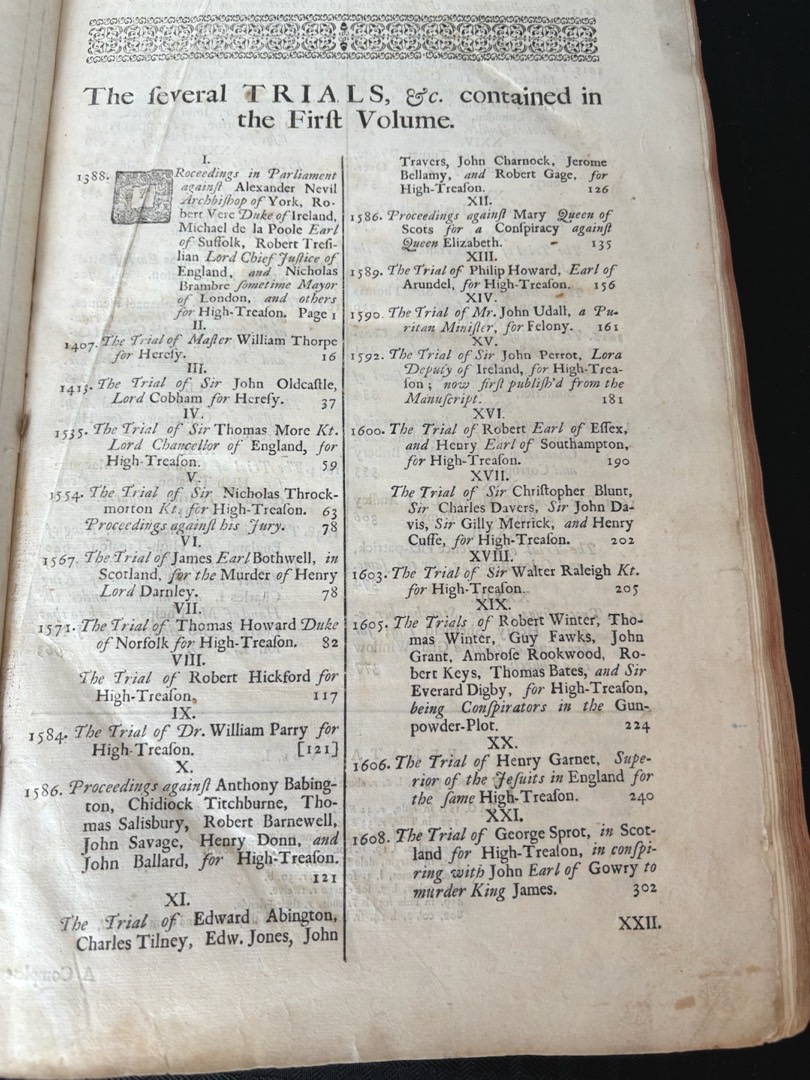 The ſeveral TRIALS, &c. contained in
the Firſt Volume.
I.
1388. PRoceedings in Parliament
againſt Alexander Nevil
Archbiſhop of York, Ro-
bert Vere Duke of Ireland,
Michael de la Poole Earl
of Suffolk, Robert Treſi-
lian Lord Chief Juſtice of
England, and Nicholas
Brambre ſometime Mayor
of London, and others
for High-Treaſon. Page 1
II.
1407. The Trial of Maſter William Thorpe
for Hereſy. 16
III.
1413. The Trial of Sir John Oldcaſtle,
Lord Cobham for Hereſy. 37
IV.
1535. The Trial of Sir Thomas More Kt.
Lord Chancellor of England, for
High-Treaſon. 59
V.
1554. The Trial of Sir Nicholas Throck-
morton Kt. for High-Treaſon. 63
Proceedings againſt his Jury. 78
VI.
1567. The Trial of James Earl Bothwell, in
Scotland, for the Murder of Henry
Lord Darnley. 78
VII.
1571. The Trial of Thomas Howard Duke
of Norfolk for High-Treaſon. 82
VIII.
The Trial of Robert Hickford for
High-Treaſon. 117
IX.
1584. The Trial of Dr. William Parry for
High-Treaſon. [121]
X.
1586. Proceedings againſt Anthony Babing-
ton, Chidiock Titchburne, Tho-
mas Salisbury, Robert Barnewell,
John Savage, Henry Donn, and
John Ballard, for High-Treaſon.
121
XI.
The Trial of Edward Abington,
Charles Tilney, Edw. Jones, John
Travers, John Charnock, Jerome
Bellamy, and Robert Gage, for
High-Treaſon. 126
XII.
1586. Proceedings againſt Mary Queen of
Scots for a Conſpiracy againſt
Queen Elizabeth. 135
XIII.
1589. The Trial of Philip Howard, Earl of
Arundel, for High-Treaſon. 156
XIV.
1590. The Trial of Mr. John Udall, a Pu-
ritan Miniſter, for Felony. 161
XV.
1592. The Trial of Sir John Perrot, Lord
Deputy of Ireland, for High-Trea-
ſon; now firſt publiſh'd from the
Manuſcript. 181
XVI.
1600. The Trial of Robert Earl of Eſſex,
and Henry Earl of Southampton,
for High-Treaſon. 190
XVII.
The Trial of Sir Chriſtopher Blunt,
Sir Charles Davers, Sir John Da-
vis, Sir Gilly Merrick, and Henry
Cuffe, for High-Treaſon. 202
XVIII.
1603. The Trial of Sir Walter Raleigh Kt.
for High-Treaſon. 205
XIX.
1605. The Trials of Robert Winter, Tho-
mas Winter, Guy Fawks, John
Grant, Ambroſe Rookwood, Ro-
bert Keys, Thomas Bates, and Sir
Everard Digby, for High-Treaſon,
being Conſpirators in the Gun-
powder-Plot. 224
XX.
1606. The Trial of Henry Garnet, Supe-
rior of the Jeſuits in England for
the ſame High-Treaſon. 240
XXI.
1608. The Trial of George Sprot, in Scot-
land for High-Treaſon, in conſpi-
ring with John Earl of Gowry to
murder King James. 302
XXII.